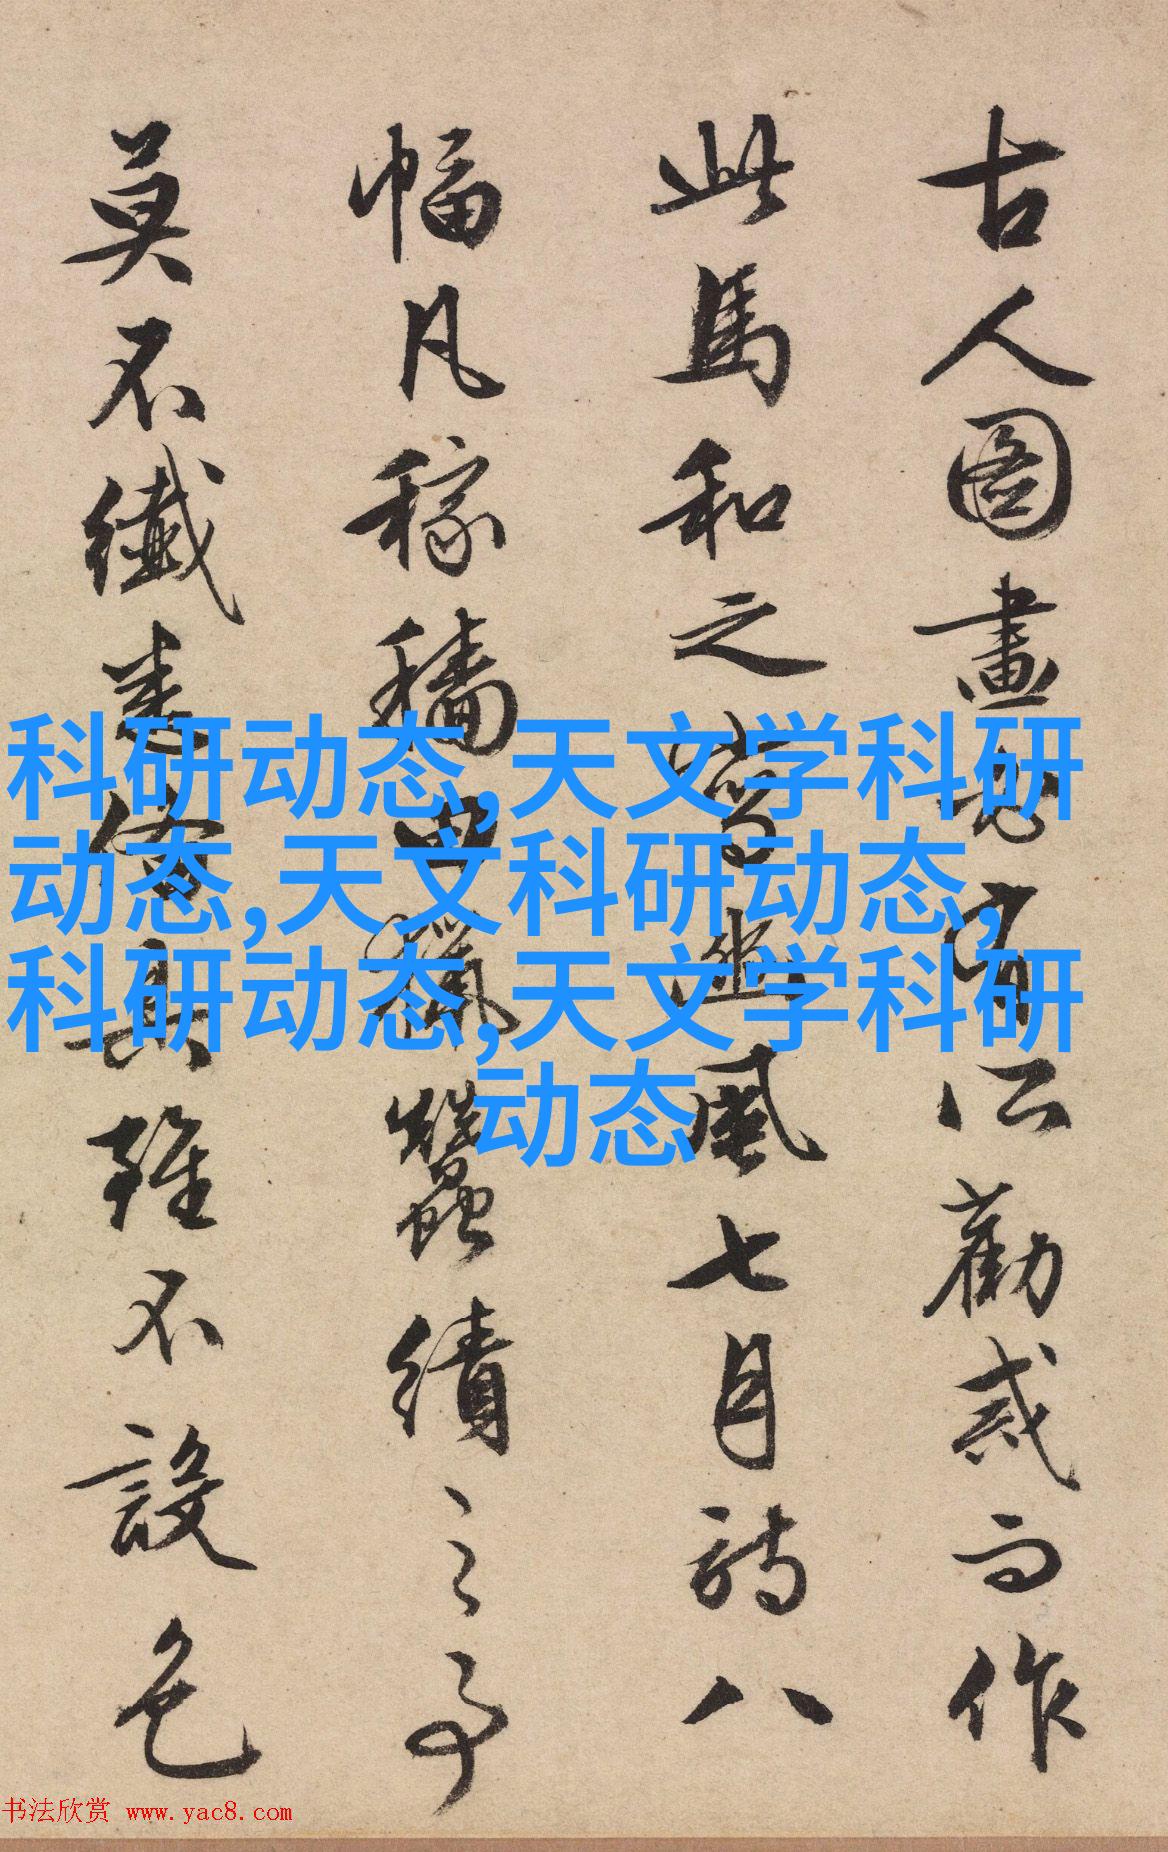 古人圖畫必有所勸戒而作
此馬和之畫豳風七月詩八
幅凡稼穡田獵蠶績之事
莫不纖悉備具雖不設色
科研动态,天文学科研
动态,天文科研动态,
科研动态,天文学科研
动态
书法欣赏 www.yac8.com